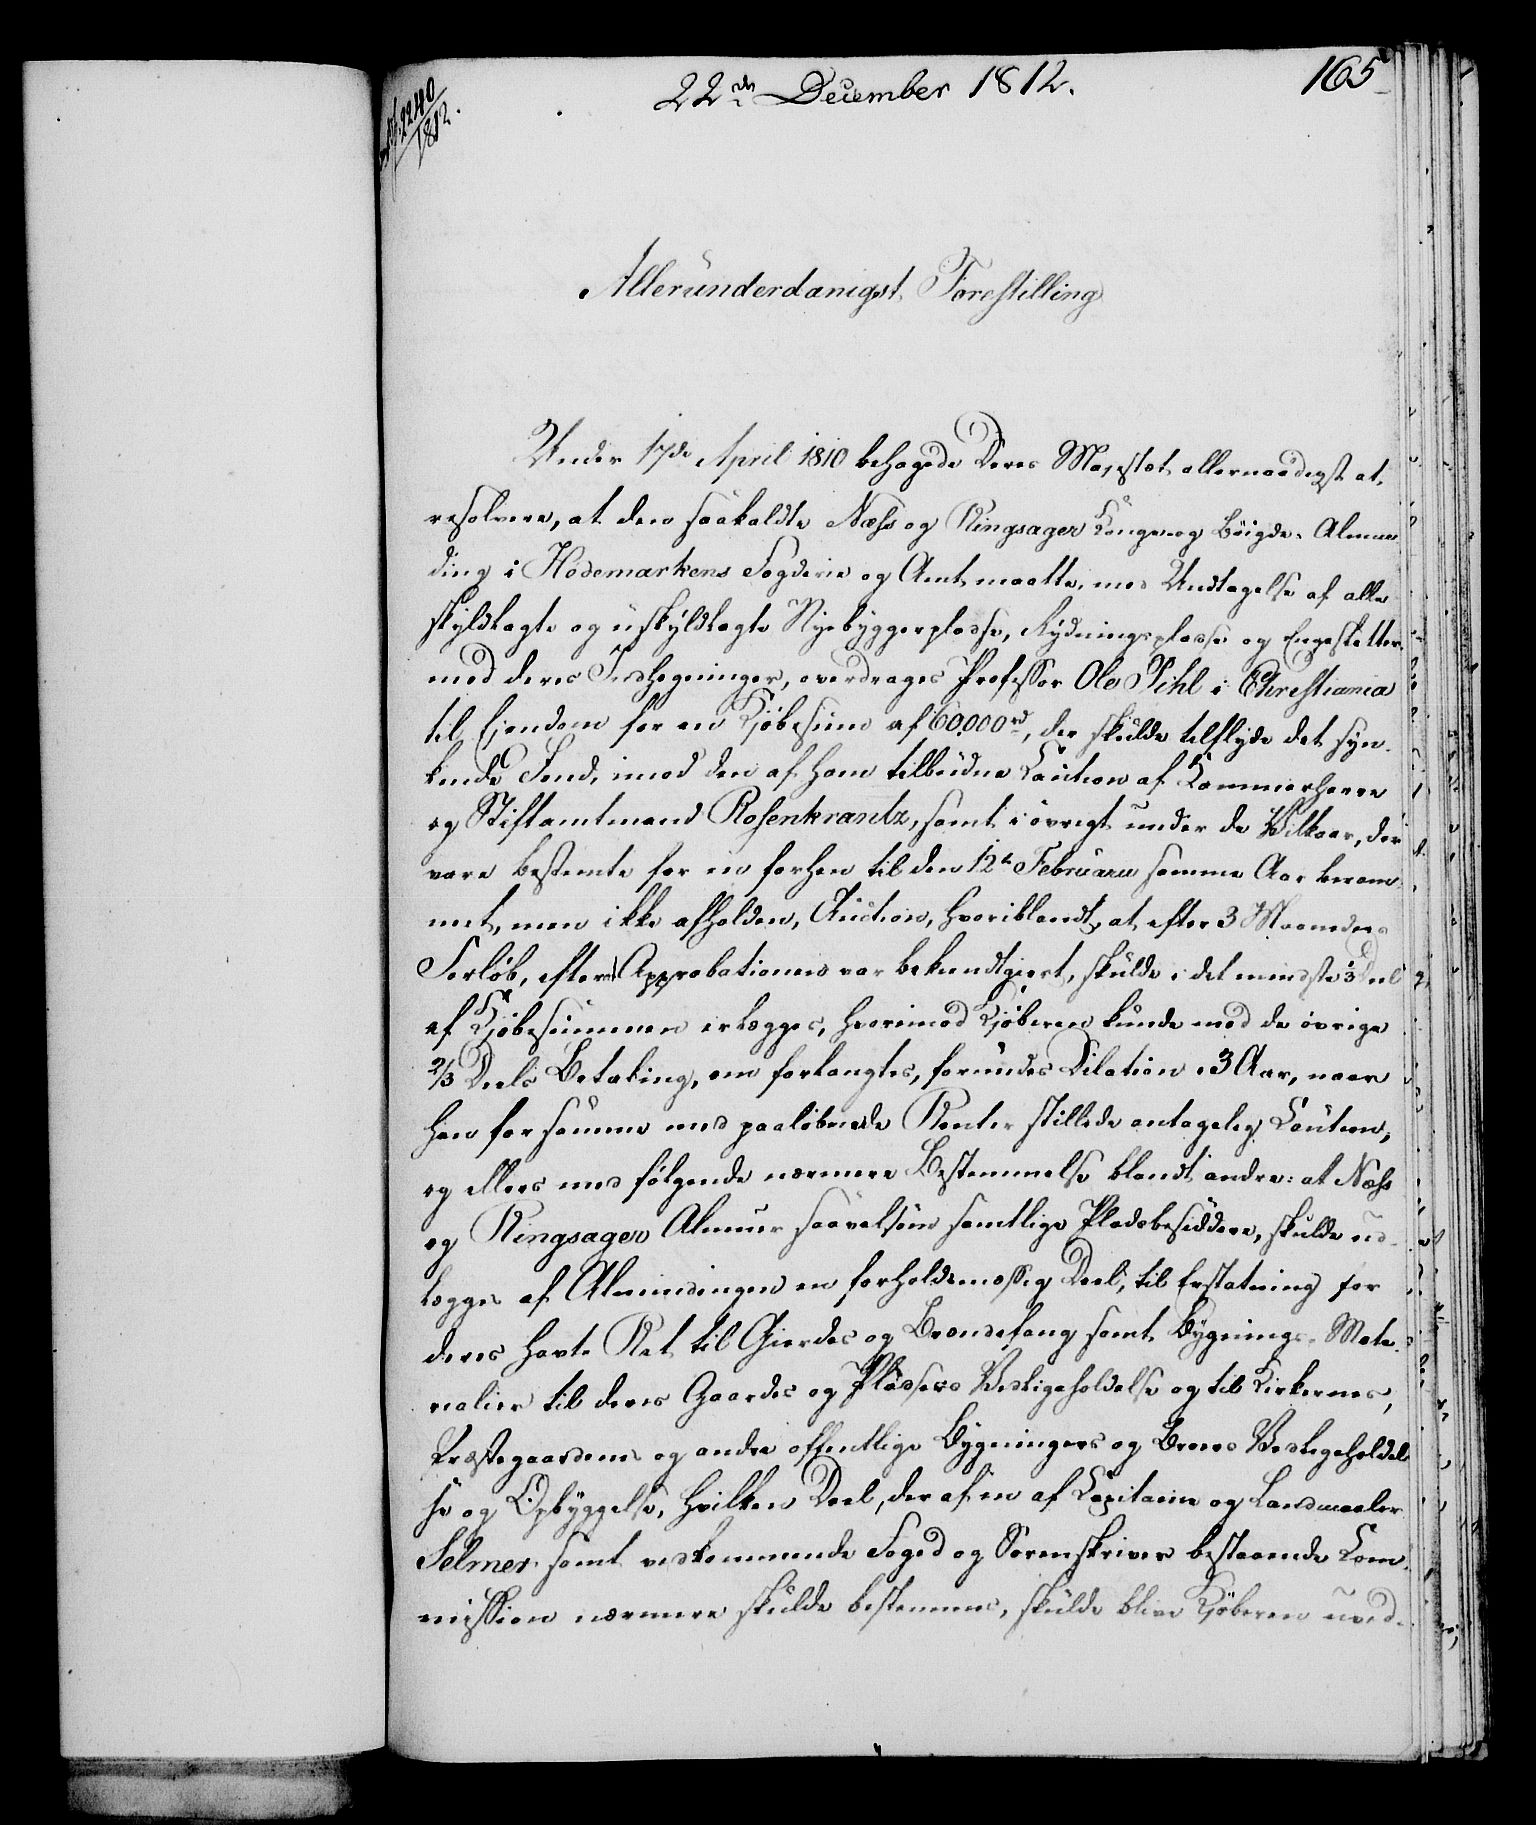 22de December 1812.
165
2240
1812.
Allerunderdanigst Forestilling
Under 17de April 1810 behagede Deres Majestæt allernaadigst at
resolvere, at den saakaldte Næss og Ringsager Konge og Bøigde-Almen
ding i Hedemarkens Fogderie og Amt maatte, med Undtagelse af alle
skyldlagte og uskyldlagte Nyebyggerpladse, Rydningspladse og Engesletter
med deres Indhegninger, overdrages Professor Ole Pihl i Christiania
til Ejendom for en Kjøbesum af 60,000 rd, der skulde tilflyde det syn-
kende Fond, imod den af ham tilbudne Caution af Kammerherre
og Stiftamtmand Rosenkrantz, samt i øvrigt under de Vilkaar, der
vare bestemte for en forhen til den 12te Februarii samme Aar beram-
met, men ikke afholden, Auction, hvoriblandt, at efter 3 Maaneders
Forløb, efterat Approbationen var bekendtgiort, skulde i det mindste 1/3 Deel
af Kjøbesummen erlægges, hvorimod Kjøberen kunde med de øvrige
2/3 Deels Betaling, om forlangtes, forundes Dilation i 3 Aar, naar
han for samme med paaløbende Renter stillede antagelig Caution,
og ellers med følgende nærmere Bestemmelse blandt andre: at Næss
og Ringsager Almue saavelsom samtlige Pladsbesiddere, skulde ud-
lægges af Almindingen en forholdsmæssig Deel, til Erstatning for
deres havte Ret til Gierdes og Brændefang samt Bygnings-Mate-
rialier til deres Gaardes og Pladsers Vedligeholdelse og til Kirkernes,
Præstegaardenes og andre offentlige Bygningers og Broers Vedligeholdel-
se og Opbyggelse, hvilken Deel, der af en af Capitaine og Landmaaler
Selmer samt vedkommende Foged og Sorenskriver bestaaende Com-
mission nærmere skulde bestemmes, skulde blive Kjøberen uved-